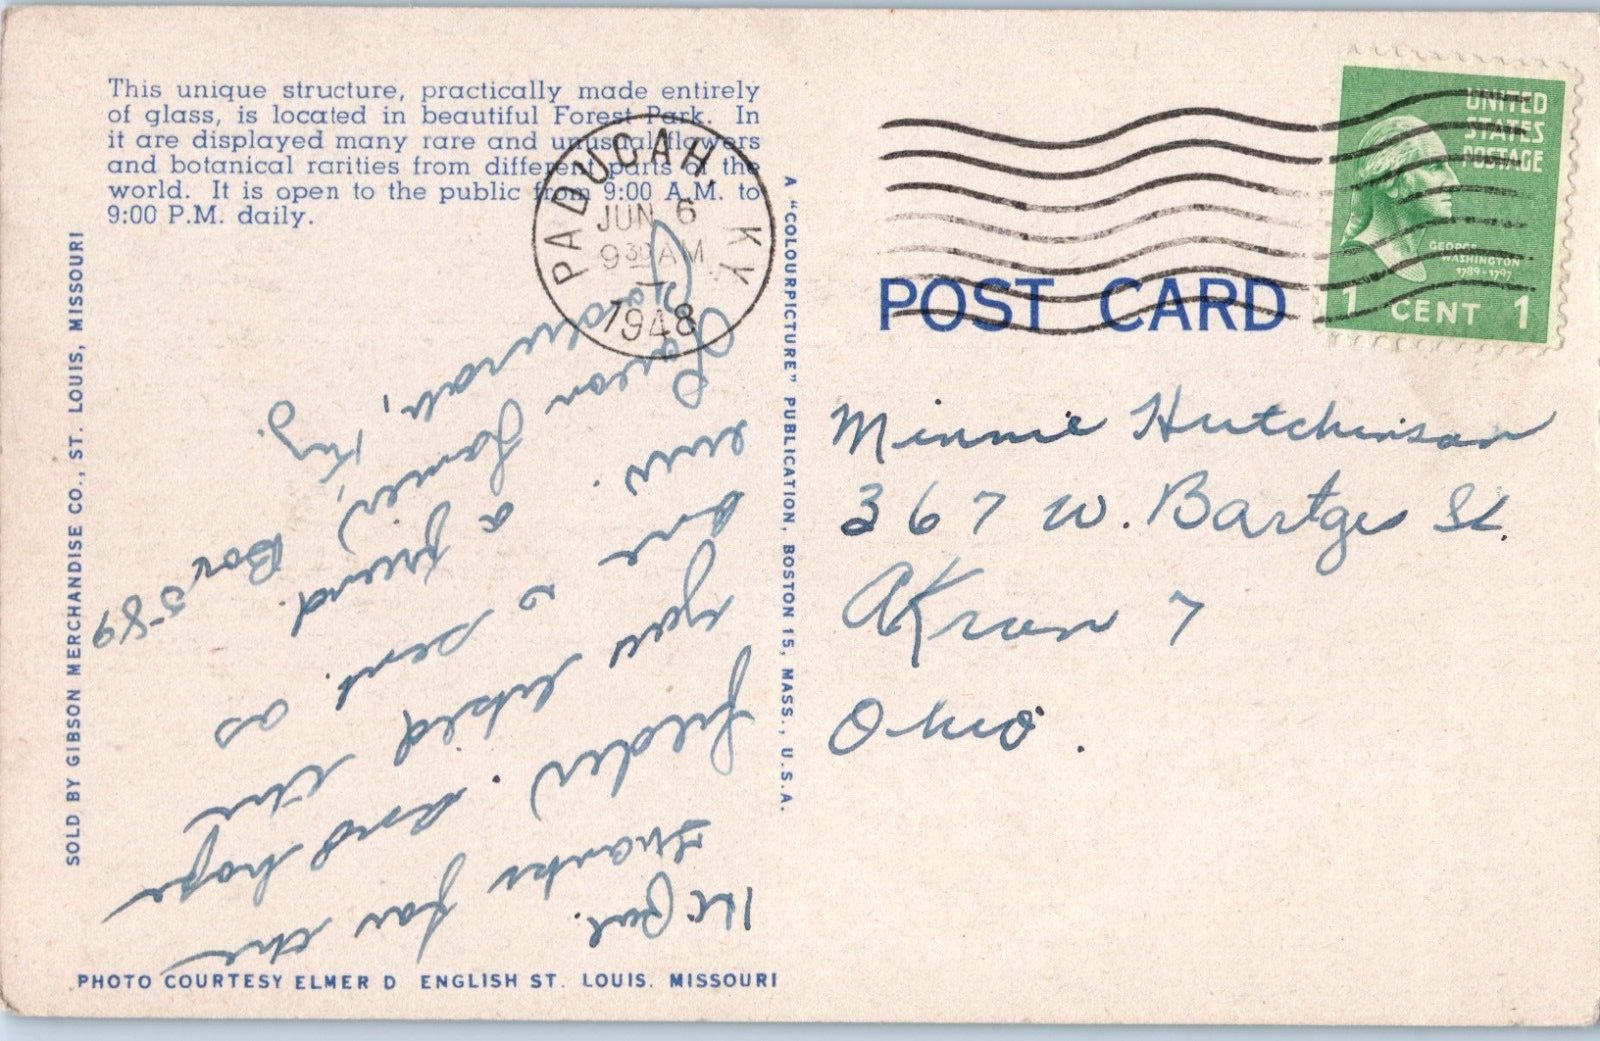 This unique structure, practically made entirely
of glass, is located in beautiful Forest Park. In
it are displayed many rare and unusual flowers
and botanical rarities from different parts of the
world. It is open to the public from 9:00 A.M. to
9:00 P.M. daily.
PADUCAH, KY
JUN 6
9 30 AM
1948
UNITED
STATES
POSTAGE
GEORGE
WASHINGTON
1789-1797
1 CENT 1
POST CARD
Minnie Hutchinson
367 W. Bartges St.
Akron 7
Ohio.
thanks for the
folder. and hope
you liked the
one I sent. as
ever.
a friend.
Box 589
Paducah, Ky.
SOLD BY GIBSON MERCHANDISE CO., ST. LOUIS, MISSOURI
A "COLOURPICTURE" PUBLICATION, BOSTON 15, MASS., U.S.A.
PHOTO COURTESY ELMER D ENGLISH ST. LOUIS. MISSOURI